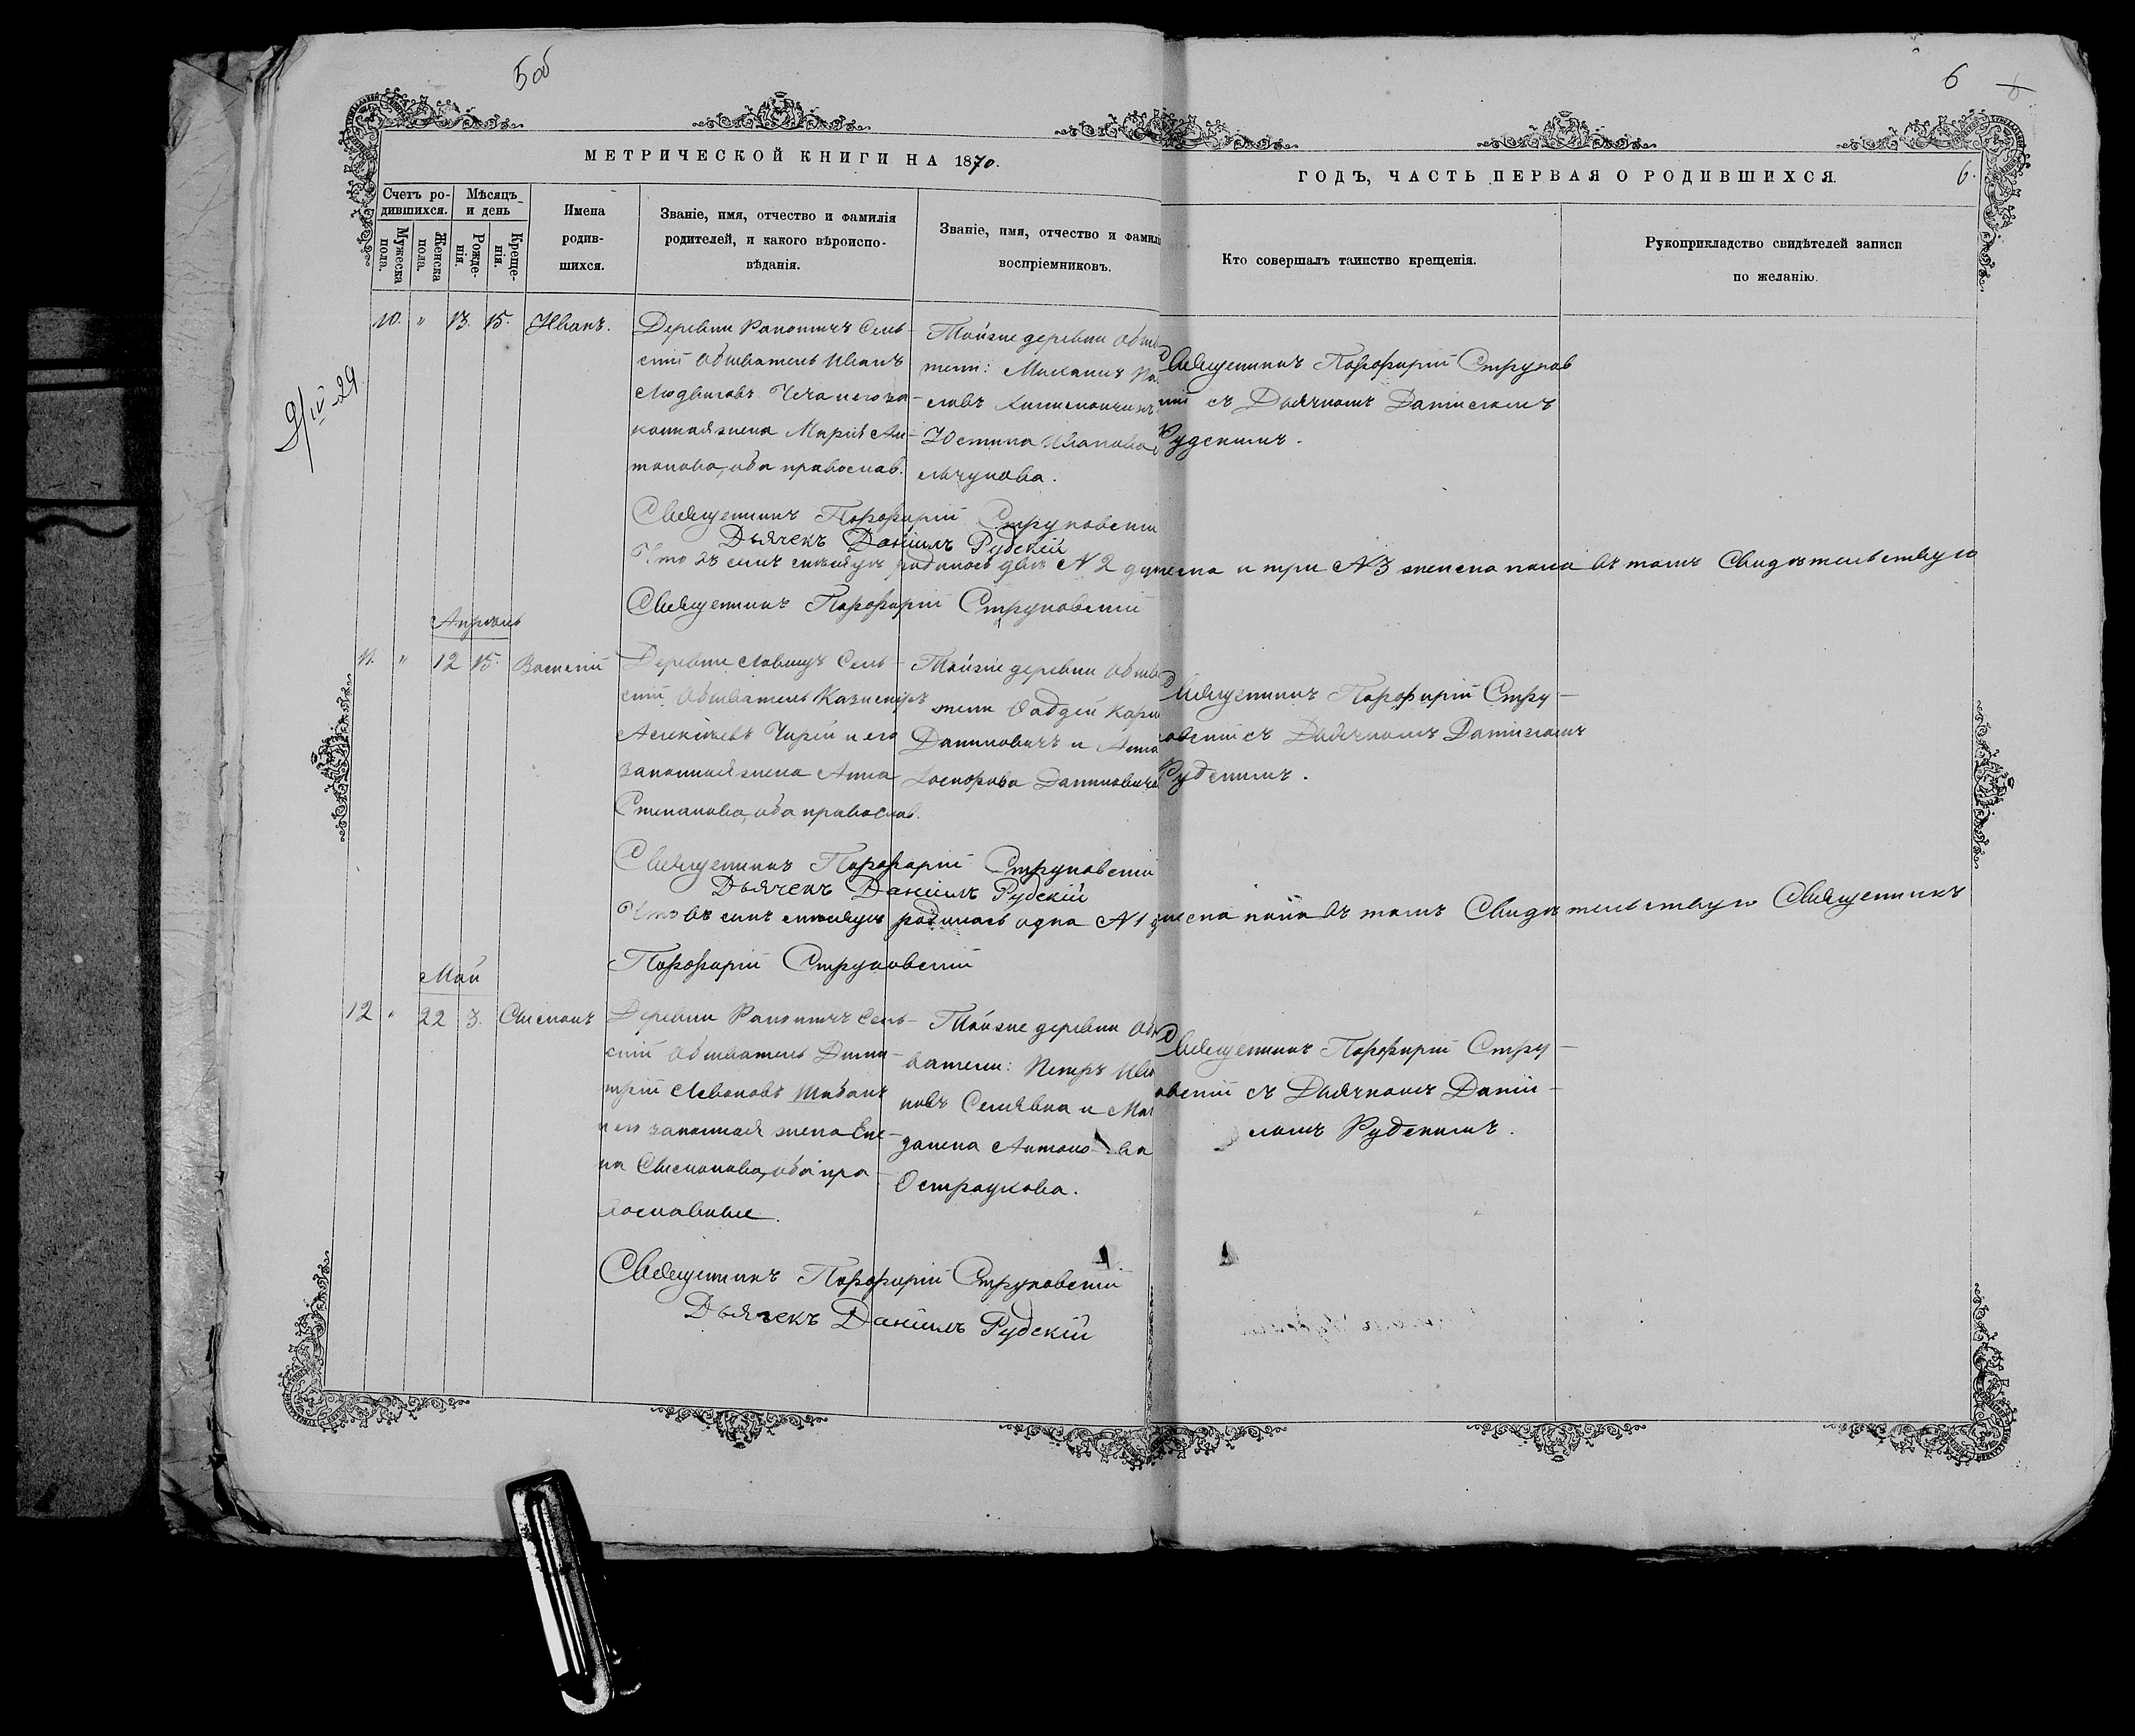 5 об
6
МЕТРИЧЕСКОЙ КНИГИ НА 1870.
ГОДЪ, ЧАСТЬ ПЕРВАЯ О РОДИВШИХСЯ.
6.
Счетъ ро-
дившихся.
Мѣсяцъ
и день
Мужеска
пола.
Женска
пола.
Рожде-
нія.
Креще-
нія.
Имена
родив-
шихся.
Званіе, имя, отчество и фамилія
родителей, и какого вѣроиспо-
вѣданія.
Званіе, имя, отчество и фамилі
воспріемниковъ.
Кто совершалъ таинство крещенія.
Рукоприкладство свидѣтелей записи
по желанію.
9/IV-29
10. " 13. 15. Иванъ.
Деревни Сель-
скій Обыватель Иванъ
Людвиговъ и его за-
конная жена Марія Ан-
тонова, оба православ.
Тойже деревни Обыва
тели:
Юстина Иванова
Священникъ Порфирій Струков
скій съ Дьячкомъ Даніиломъ
Рудскимъ.
Священникъ Порфирій Струковскій
Дьячекъ Даніилъ Рудскій
Что въ семъ мѣсяцѣ родилось два № 2 мужеска и три № 3 женска пола въ томъ Свидѣтельствую
Священникъ Порфирій Струковскій
Апрѣль
11. " 12 15. Василій
Деревни Сель-
скій Обыватель Казимиръ
Алексѣевъ и его
законная жена Анна
Степанова, оба православ.
Тойже деревни Обыва
тели
Даниловичъ и Анна
Священникъ Порфирій Стру-
ковскій съ Дьячкомъ Даніиломъ
Рудскимъ.
Священникъ Порфирій Струковскій
Дьячекъ Даніилъ Рудскій
Что въ семъ мѣсяцѣ родилась одна № 1 пола въ томъ Свидѣтельствую Священникъ
Порфирій Струковскій
Май
12 " 22 3. Стефанъ
Деревни Сель-
скій Обыватель Дими-
трій Шабанъ
и его законная жена Еле-
на Стефанова, оба пра-
вославные.
Тойже деревни Обы
ватели: Петръ Ива
новъ и Маг
далена Антонова
Остраухова.
Священникъ Порфирій Стру-
ковскій съ Дьячкомъ Даніи-
ломъ Рудскимъ.
Священникъ Порфирій Струковскій
Дьячекъ Даніилъ Рудскій